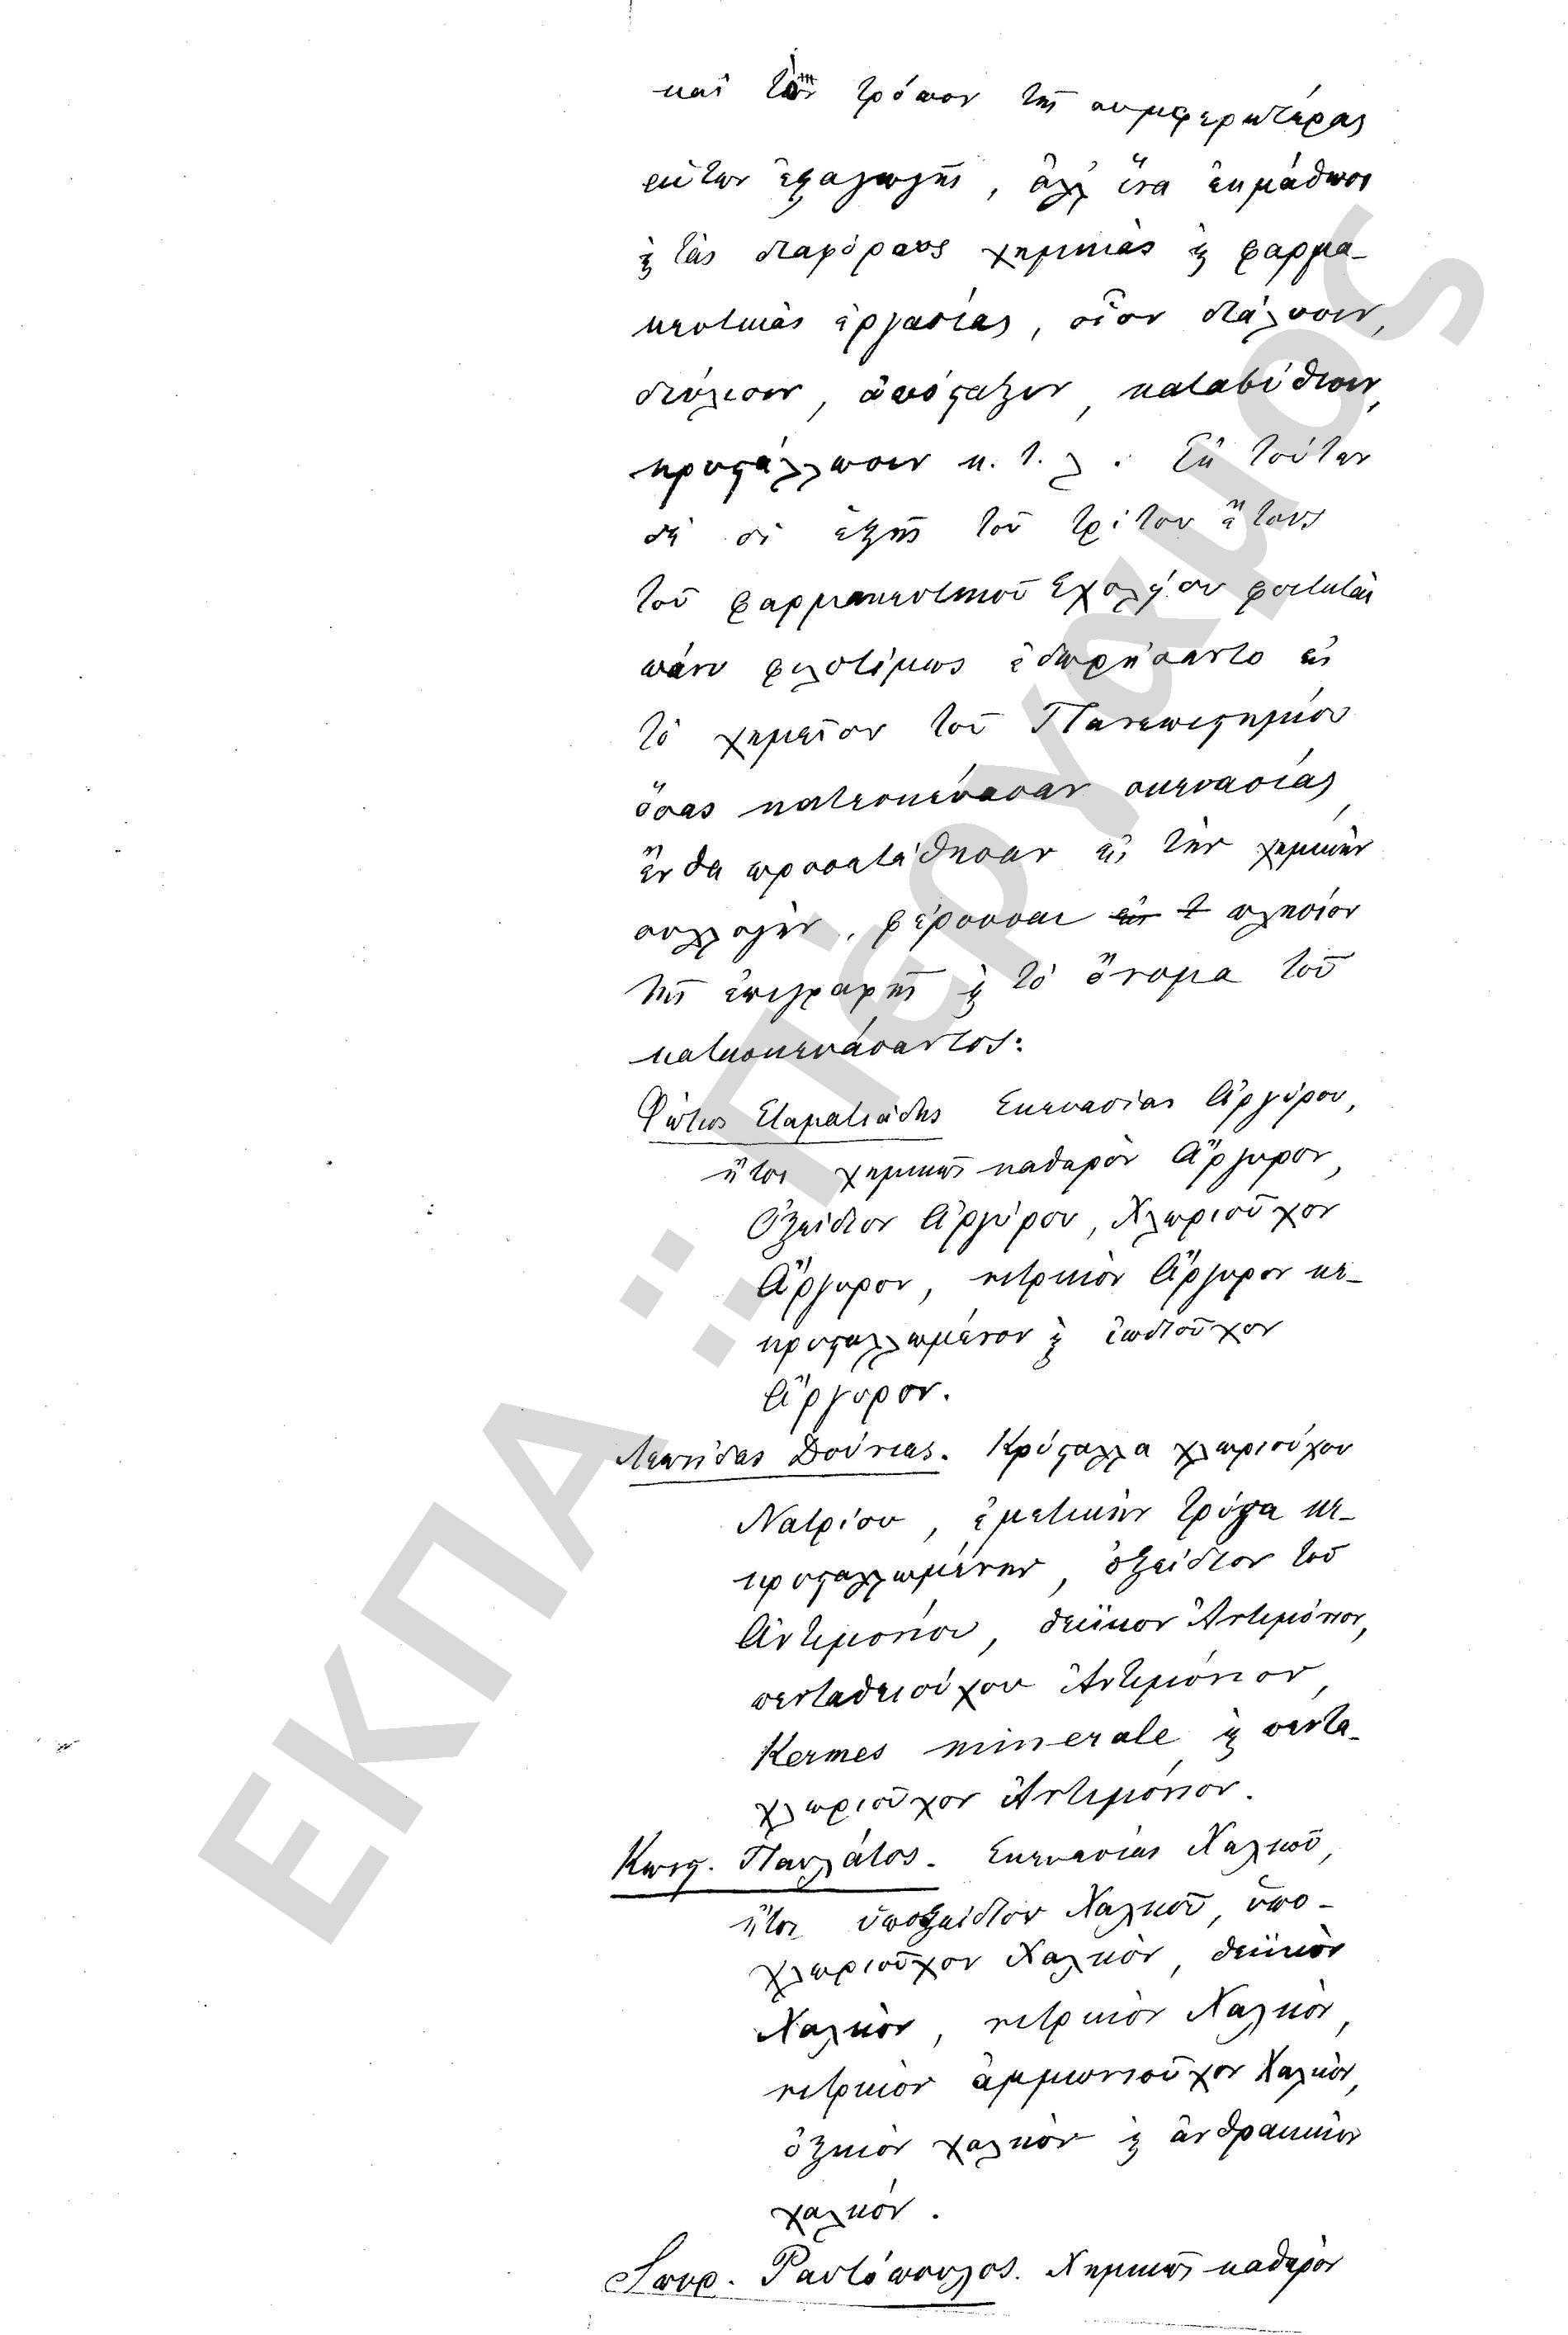 καὶ τὸν τρόπον τῆς συμφερωτέρας
αὐτῶν ἐξαγωγῆς, ἀλλ' ἵνα ἐκμάθωσι
ϗ τὰς διαφόρους χημικὰς ϗ φαρμα-
κευτικὰς ἐργασίας, οἷον διάλυσιν,
διύλισιν, ἀπόσταξιν, καταβύθισιν,
κρυστάλλωσιν κ.τ.λ. Ἐκ τούτων
δὲ οἱ ἑξῆς τοῦ τρίτου ἔτους
τοῦ φαρμακευτικοῦ Σχολείου φοιτηταὶ
πάνυ φιλοτίμως ἐδωρήσαντο εἰς
τὸ χημεῖον τοῦ Πανεπιστημίου
ὅσας κατεσκεύασαν σκευασίας,
ἔνθα προσετέθησαν εἰς τὴν χημικὴν
συλλογὴν, φέρουσαι εἰς τ πλησίον
τῆς ἐπιγραφῆς ϗ τὸ ὄνομα τοῦ
κατασκευάσαντος:
Φώτιος Σταματιάδης Σκευασίας Ἀργύρου,
ἤτοι χημικῶς καθαρὸν Ἄργυρον,
Ὀξείδιον Ἀργύρου, Χλωριοῦχον
Ἄργυρον, νιτρικὸν Ἄργυρον κε-
κρυσταλλωμένον ϗ ἰωδιοῦχον
Ἄργυρον.
Λεωνίδας Δούνιας. Κρύσταλλα χλωριούχου
Νατρίου, ἐμετικὴν τρύγα κε-
κρυσταλλωμένην, ὀξείδιον τοῦ
Ἀντιμονίου, θειϊκον Ἀντιμόνιον,
πενταθειούχον Ἀντιμόνιον,
Kermes minerale ϗ πεντα-
χλωριοῦχον Ἀντιμόνιον.
Κωνστ. Παυλάτος. Σκευασίας Χαλκοῦ,
ἤτοι ὑποξείδιον Χαλκοῦ, ὑπο-
χλωριοῦχον Χαλκὸν, θειϊκὸν
Χαλκὸν, νιτρικὸν Χαλκὸν,
νιτρικὸν ἀμμωνιοῦχον Χαλκὸν,
ὀξικὸν χαλκὸν ϗ ἀνθρακικὸν
χαλκόν.
Σπυρ. Ραυτόπουλος. Χημικῶς καθαρὸν
ΕΚΠΑ: Πέργαμος